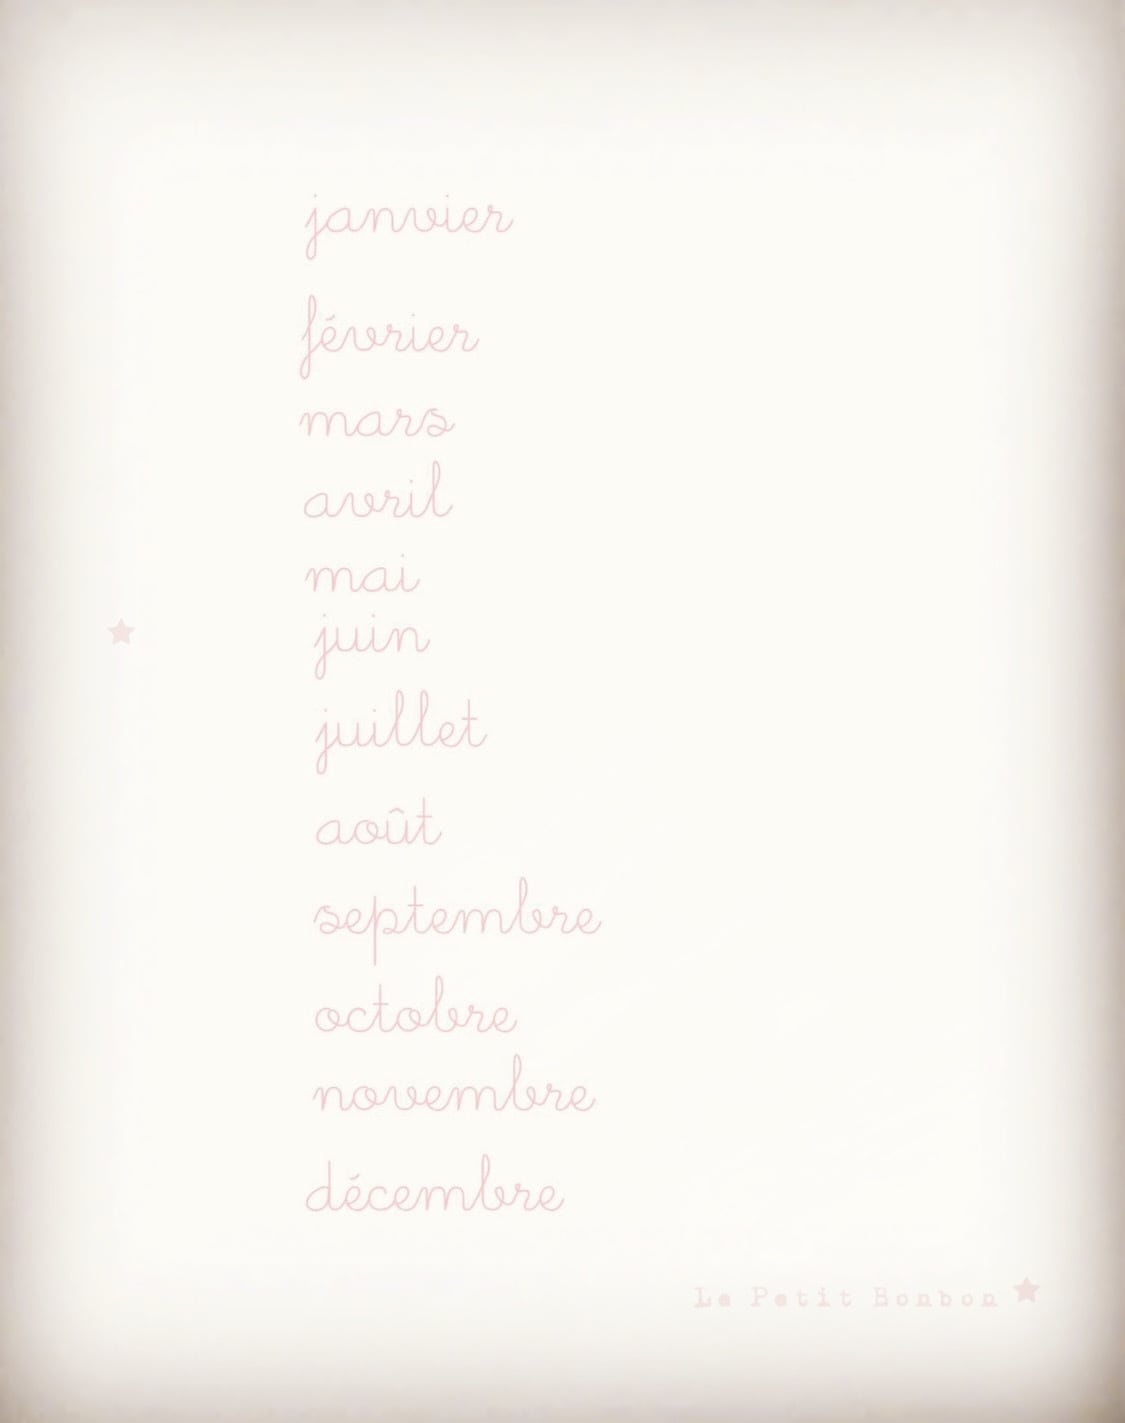 janvier
février
mars
avril
mai
juin
juillet
août
septembre
octobre
novembre
décembre
Le Petit Bonbon